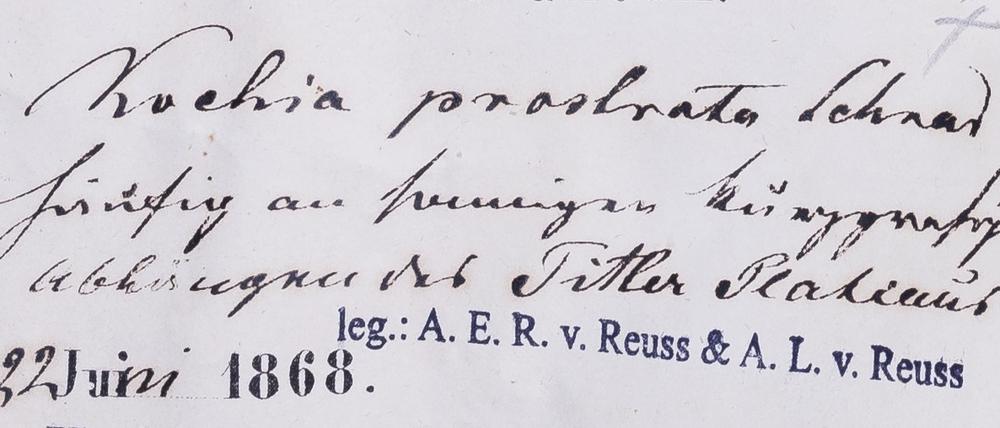 Kochia prostrata Schrad
häufig an sonnigen kurzgrasig
Abhängen des Titler Plateaus
leg.: A. E. R. v. Reuss & A. L. v. Reuss
22 Juni 1868.